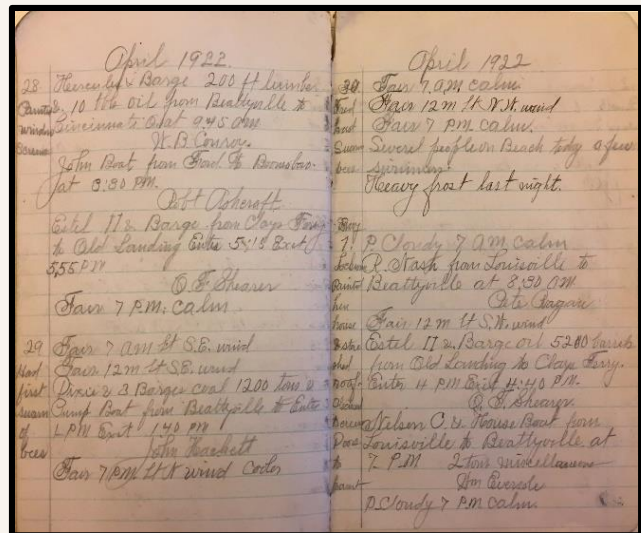 April 1922
28 Hercules & Barge 200 ft lumber
Painted & 10 bbls oil from Beattyville to
window Cincinnati O at 9:45 AM
Screens W. B. Conroy
John Boat from Ford to Boonsboro
at 3:30 PM.
Robt Ashcroft
Estel II & Barge from Clays Ferry
to Old Landing Enter 5:15 Exit
5,55 PM
O. F. Shearer
Fair 7 P.M. calm
29 Fair 7 AM Lt S.E. wind
Had Fair 12 M Lt S.E. wind
first Dixie & 3 Barges coal 1200 tons &
swarm Pump Boat from Beattyville to Enter
of 1 PM Exit 1:40 PM
bees John Hackett
Fair 7 PM Lt N wind cooler
April 1922
30 Fair 7 AM calm.
Fair 12 M Lt N.W. wind
had Fair 7 PM. calm.
Swarm Severl people on Beach today a few
bees swimming.
Heavy frost last night.
May
1. P Cloudy 7 AM calm
R. Nash from Louisville to
Painted Beattyville at 8:30 AM
hen Pete
house Fair 12 M Lt S.W. wind
Estel II & Barge oil 5200 barrels
from Old Landing to Clays Ferry.
roof. Enter 4 PM Exit 4:40 P.M.
O. F. Shearer.
Screens Nelson C. & House Boat from
Louisville to Beattyville at
to 7 P.M 2 tons miscellaneous
paint Wm Eversole
P Cloudy 7 PM calm.